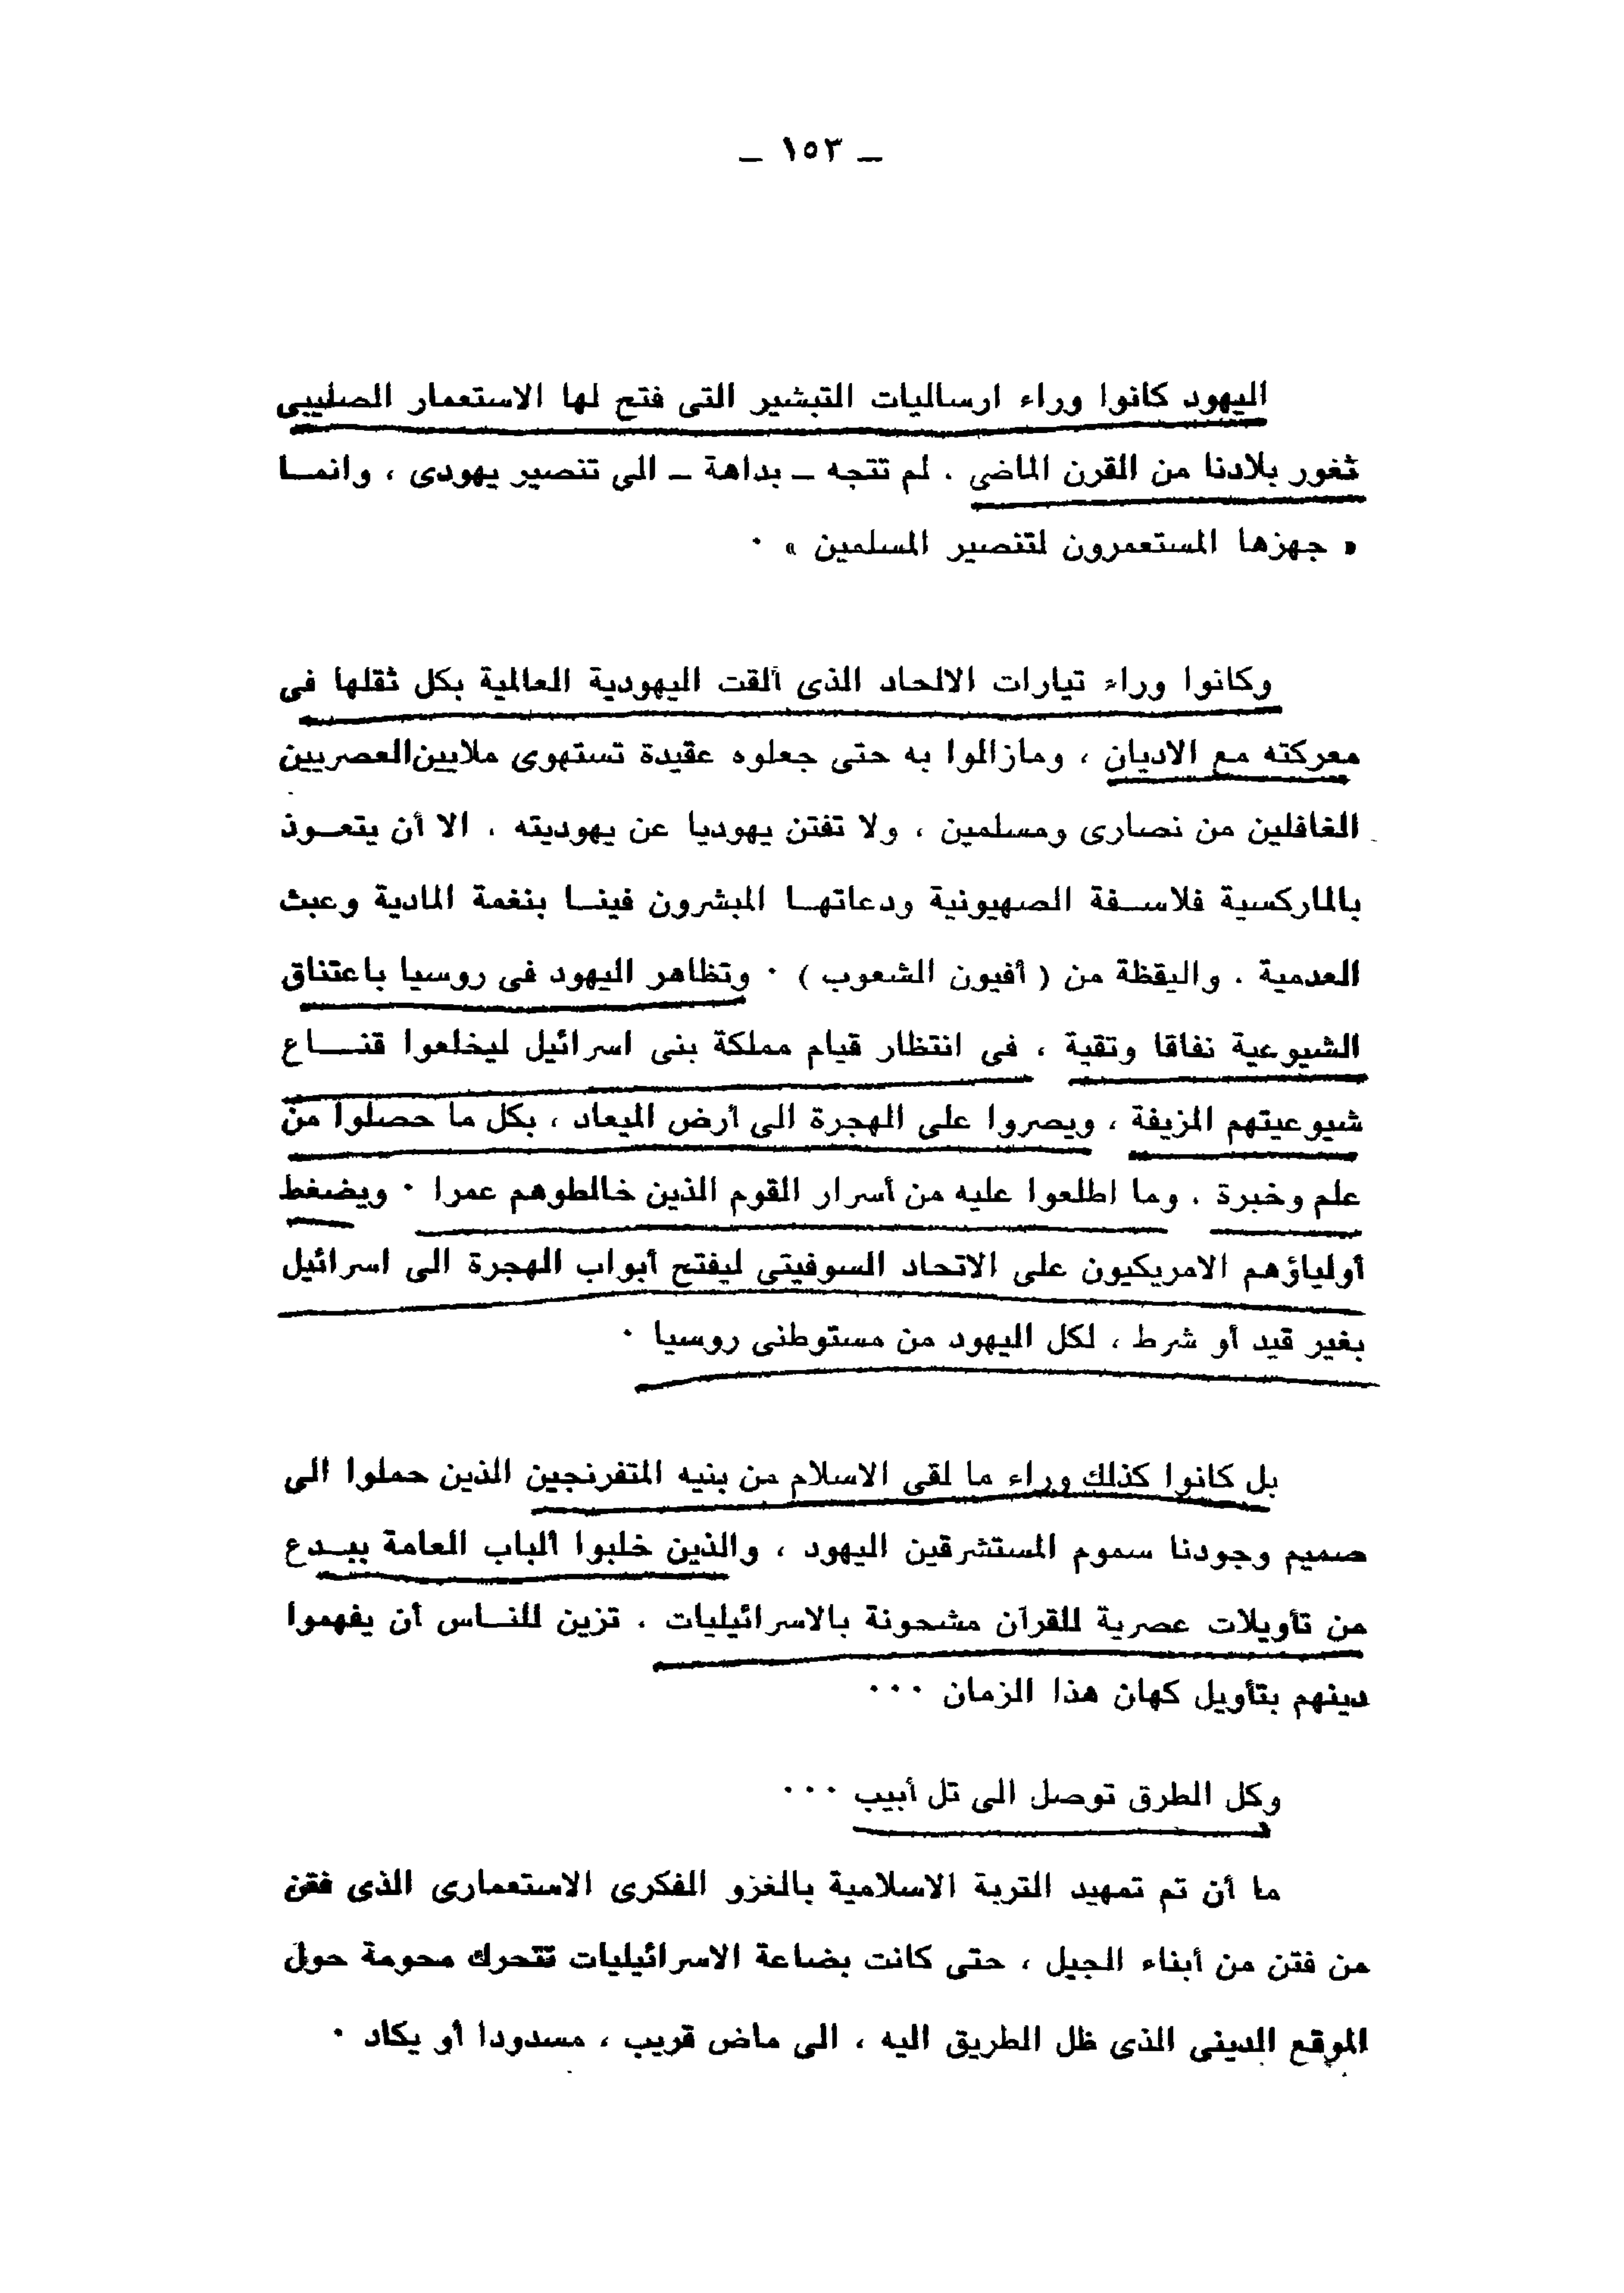 – ١٥٣ –
اليهود كانوا وراء ارساليات التبشير التى فتح لها الاستعمار الصليبى
ثغور بلادنا من القرن الماضى ، لم تتجه – بداهة – الى تنصير يهودى ، وانمـا
« جهزها المستعمرون لتنصير المسلمين » ٠
وكانوا وراء تيارات الالحاد الذى ألقت اليهودية العالمية بكل ثقلها فى
معركته مع الاديان ، ومازالوا به حتى جعلوه عقيدة تستهوى ملايين العصريين
الغافلين من نصارى ومسلمين ، ولا تفتن يهوديا عن يهوديته ، الا أن يتعـوذ
بالماركسية فلاسـفة الصهيونية ودعاتهـا المبشرون فينـا بنغمة المادية وعبث
العدمية ، واليقظة من ( أفيون الشعوب ) ٠ وتظاهر اليهود فى روسيا باعتناق
الشيوعية نفاقا وتقية ، فى انتظار قيام مملكة بنى اسرائيل ليخلعوا قنــاع
شيوعيتهم المزيفة ، ويصروا على الهجرة الى أرض الميعاد ، بكل ما حصلوا من
علم وخبرة ، وما اطلعوا عليه من أسرار القوم الذين خالطوهم عمرا ٠ ويضغط
أولياؤهم الامريكيون على الاتحاد السوفيتى ليفتح أبواب الهجرة الى اسرائيل
بغير قيد أو شرط ، لكل اليهود من مستوطنى روسيا ٠
بل كانوا كذلك وراء ما لقى الاسلام من بنيه المتفرنجين الذين حملوا الى
صميم وجودنا سموم المستشرقين اليهود ، والذين خلبوا ألباب العامة ببـدع
من تأويلات عصرية للقرآن مشحونة بالاسرائيليات ، تزين للنـاس أن يفهموا
دينهم بتأويل كهان هذا الزمان ٠٠٠
وكل الطرق توصل الى تل أبيب ٠٠٠
ما أن تم تمهيد التربة الاسلامية بالغزو الفكرى الاستعمارى الذى فتن
من فتن من أبناء الجيل ، حتى كانت بضاعة الاسرائيليات تتحرك محومة حول
الموقع الدينى الذى ظل الطريق اليه ، الى ماض قريب ، مسدودا أو يكاد ٠